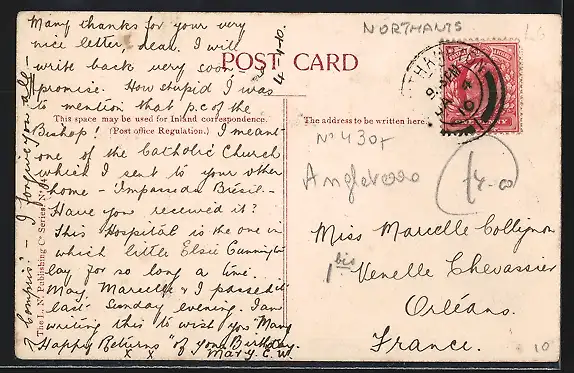 Many thanks for your very
nice letter, dear. I will
write back very soon, I
promise. How stupid I was
to mention that p.c of the
Bishop! I meant
one of the Catholic Church
which I sent to your other
home - Impasse du Brésil. -
Have you received it?
This Hospital is the one in
which little Elsie Cunnington
lay for so long a time.
May, Marcelle & I passed it
last Sunday evening. I am
writing this to wish you "Many
Happy Returns" of your Birthday.
x x Mary C. W.
4.1.10.
compris" - I forgive you all
POST CARD
This space may be used for Inland correspondence.
(Post office Regulation.)
The address to be written here.
The L. N. Publishing Co Series. No
NORTHANTS
L6
NORTHAMPTON
9. PM
JA 4
10
No 4307
Angleterre
Miss Marcelle Collignon
1 bis Venelle Chevassier
Orléans.
France.
10